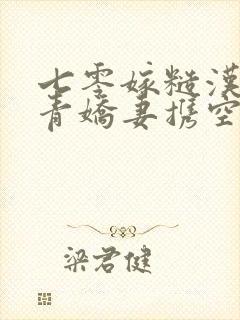 七零嫁糙漢
青嬌妻携空
梁君健